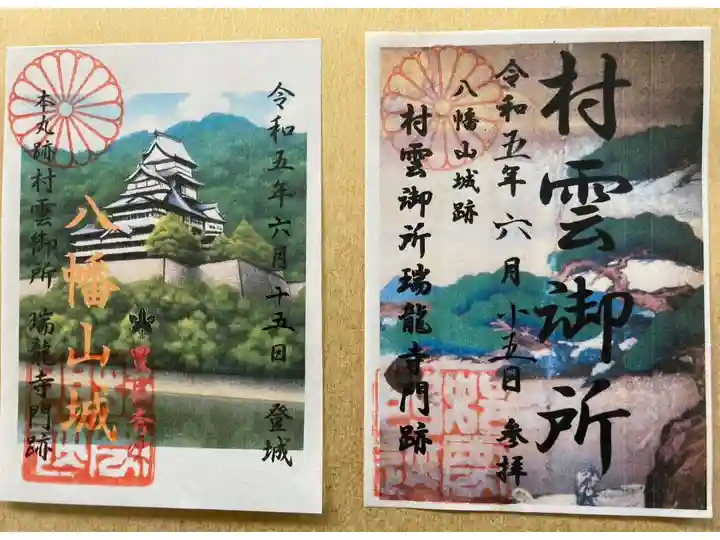 令和五年六月十五日 登城
八幡山城
本丸跡村雲御所 瑞龍寺門跡
村雲御所
令和五年六月十五日 参拝
八幡山城跡
村雲御所瑞龍寺門跡